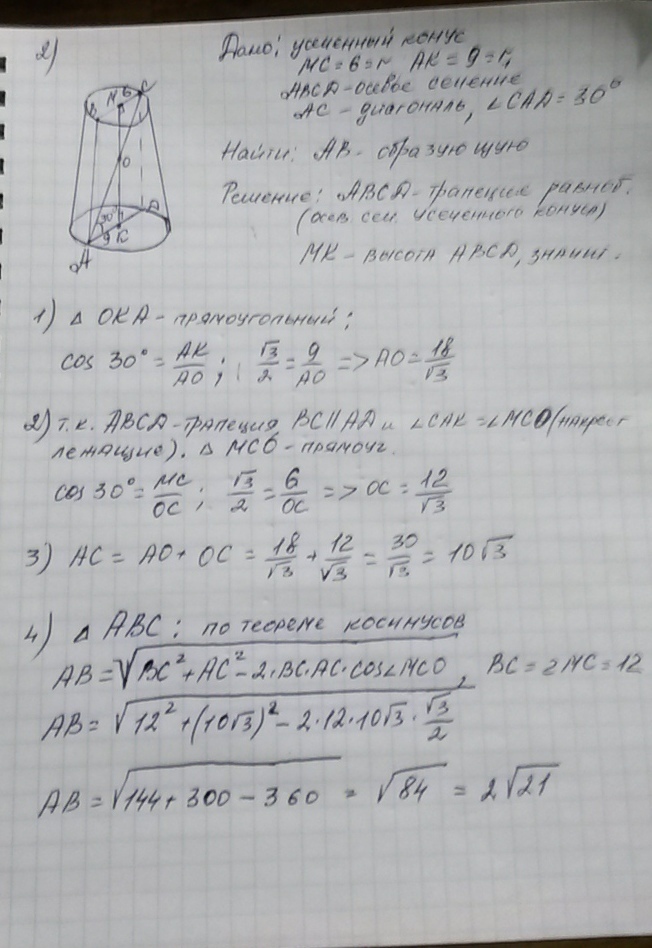 2)
Дано: усеченный конус
MC = 6 = r   AK = 9 = r₁
ABCD - осевое сечение
AC - диагональ, ∠CAD = 30°
Найти: AB - образующую
Решение: ABCD - трапеция равноб.
(осев. сеч. усеченного конуса)
MK - высота ABCD, значит.
M 6 C
B
O
30°
D
9 K
A
1) Δ OKA - прямоугольный;
cos 30° = AK/AO ; √3/2 = 9/AO => AO = 18/√3
2) т.к. ABCD - трапеция, BC || AD и ∠CAK = ∠MCO (накрест
лежащие). Δ MCO - прямоуг.
cos 30° = MC/OC ; √3/2 = 6/OC => OC = 12/√3
3) AC = AO + OC = 18/√3 + 12/√3 = 30/√3 = 10√3
4) Δ ABC: по теореме косинусов
AB = √(BC² + AC² - 2·BC·AC·cos∠MCO) , BC = 2MC = 12
AB = √(12² + (10√3)² - 2·12·10√3 · √3/2)
AB = √(144 + 300 - 360) = √84 = 2√21